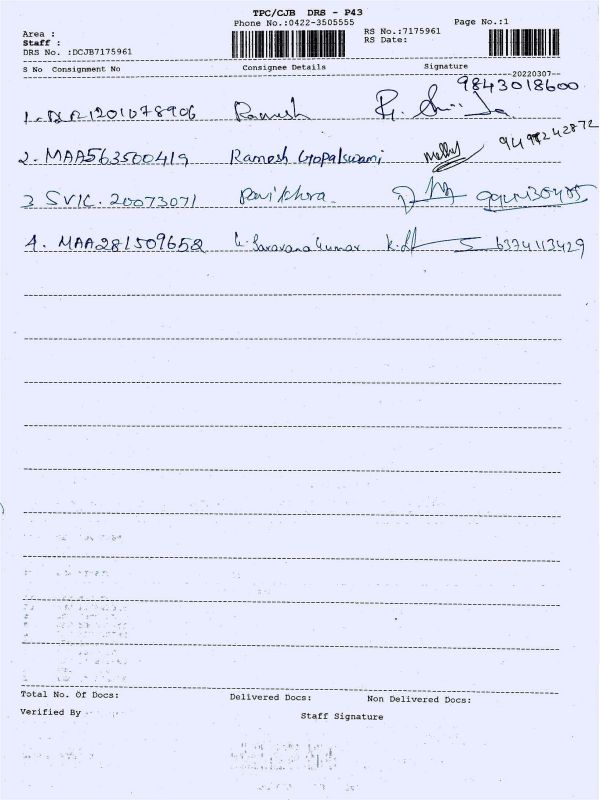 TPC/CJB DRS - P43
Phone No.:0422-3505555 Page No.:1
Area : RS No.:7175961
Staff : RS Date:
DRS No. :DCJB7175961
S No Consignment No Consignee Details Signature
--20220307--
9843018600
1. 1201078906 Ramesh
2. MAA563500419 Ramesh Gopalswami
3 SVIC. 20073071
4. MAA281509652 K. Saravana Kumar 6374113429
Total No. Of Docs: Delivered Docs: Non Delivered Docs:
Verified By Staff Signature